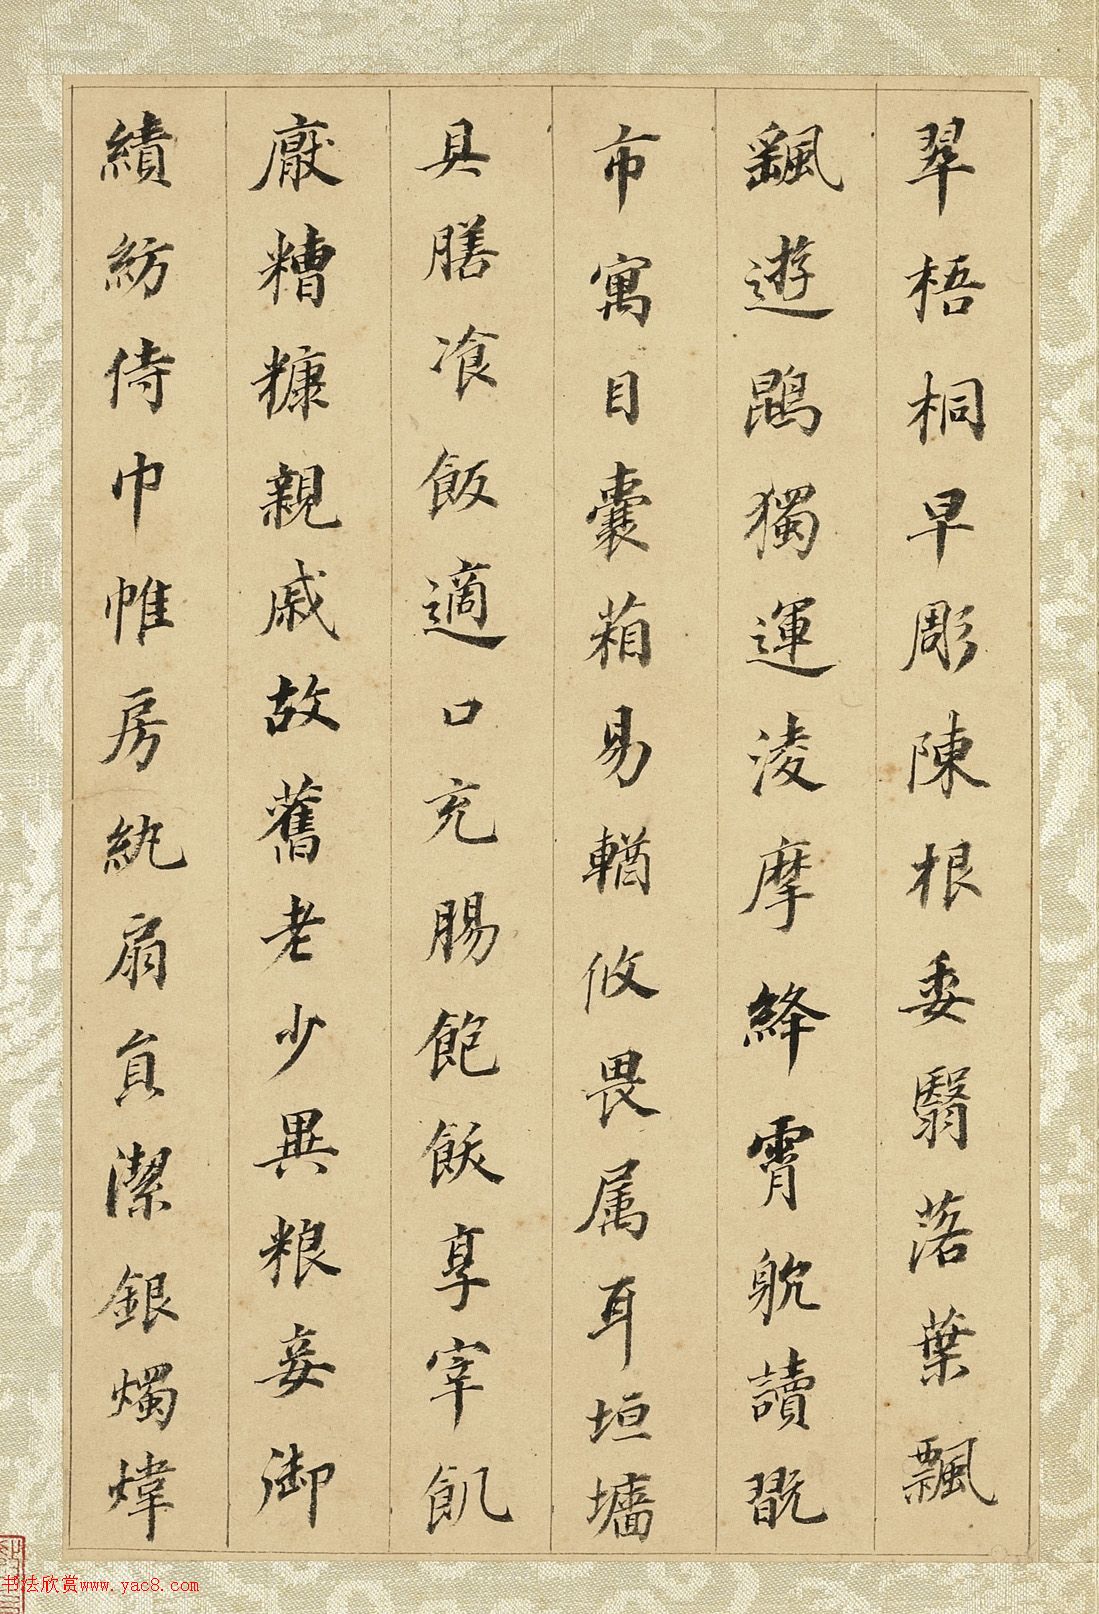 翠梧桐早彫陳根委翳落葉飄
飖遊鵾獨運凌摩絳霄躭讀翫
市寓目囊葙易輶攸畏属耳垣墻
具膳飡飯適口充腸飽飫享宰飢
厭糟糠親戚故舊老少異粮妾御
績紡侍巾帷房紈扇負潔銀燭煒
书法欣赏www.yac8.com